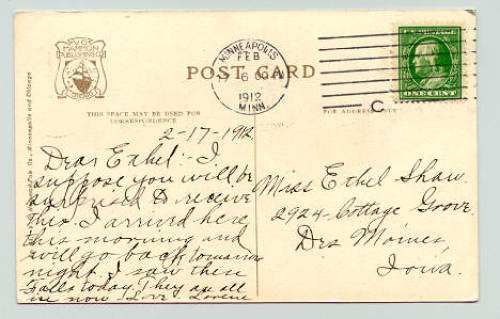 V.O.
HAMMON
PUBLISHING CO.
MINNEAPOLIS
FEB
1912
MINN.
C
ONE CENT
POST CARD
THIS SPACE MAY BE USED FOR
CORRESPONDENCE
FOR ADDRESS ONLY
Pub. Co., Minneapolis and Chicago
2-17-1912.
Dear Ethel:- I
suppose you will be
surprised to receive
this. I arrived here
this morning and
will go back tomorrow
night. I saw these
Falls today They are all
ice now. Love Lorene
Miss Ethel Shaw.
2924-Cottage Grove.
Des Moines,
Iowa.